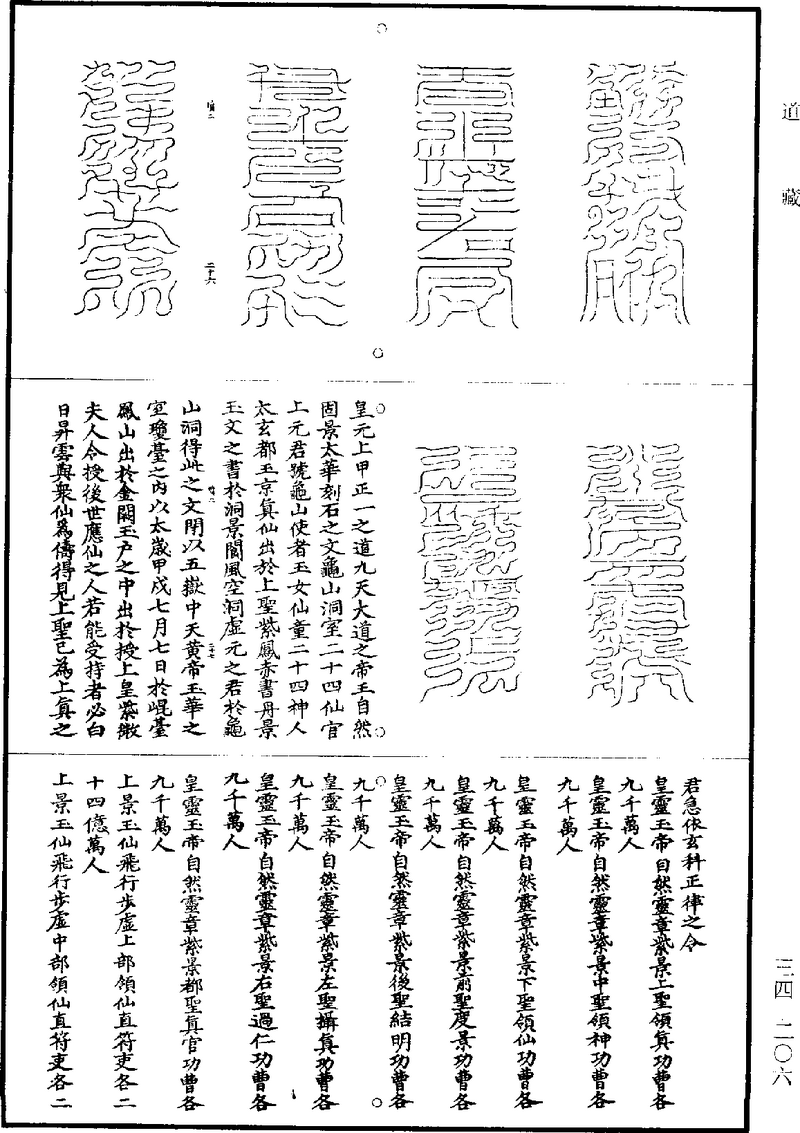 道藏
二十六
皇元上甲正一之道九天大道之帝王自然
固景太華刻石之文龜山洞室二十四仙官
上元君號龜山使者玉女仙童二十四神人
太玄都玉京真仙出於上聖紫鳳赤書丹景
玉文之書於洞景閬風空洞虛元之君於龜
二十七
山洞得此之文閉以五嶽中天黃帝玉華之
室瓊臺之內以太歲甲戌七月七日於崐臺
鳳山出於金闕玉户之中出於授上皇紫微
夫人令授後世應仙之人若能受持者必白
日昇雲與衆仙爲儔得見上聖已為上真之
君急依玄科正律之令
皇靈玉帝自然靈章紫景上聖領真功曹各
九千萬人
皇靈玉帝自然靈章紫景中聖領神功曹各
九千萬人
皇靈玉帝自然靈章紫景下聖領仙功曹各
九千萬人
皇靈玉帝自然靈章紫景前聖度景功曹各
九千萬人
皇靈玉帝自然靈章紫景後聖結明功曹各
九千萬人
皇靈玉帝自然靈章紫景左聖攝真功曹各
九千萬人
皇靈玉帝自然靈章紫景右聖過仁功曹各
九千萬人
皇靈玉帝自然靈章紫景都聖真官功曹各
九千萬人
上景玉仙飛行步虛上部領仙直符吏各二
十四億萬人
上景玉仙飛行步虛中部領仙直符吏各二
三四 二〇六